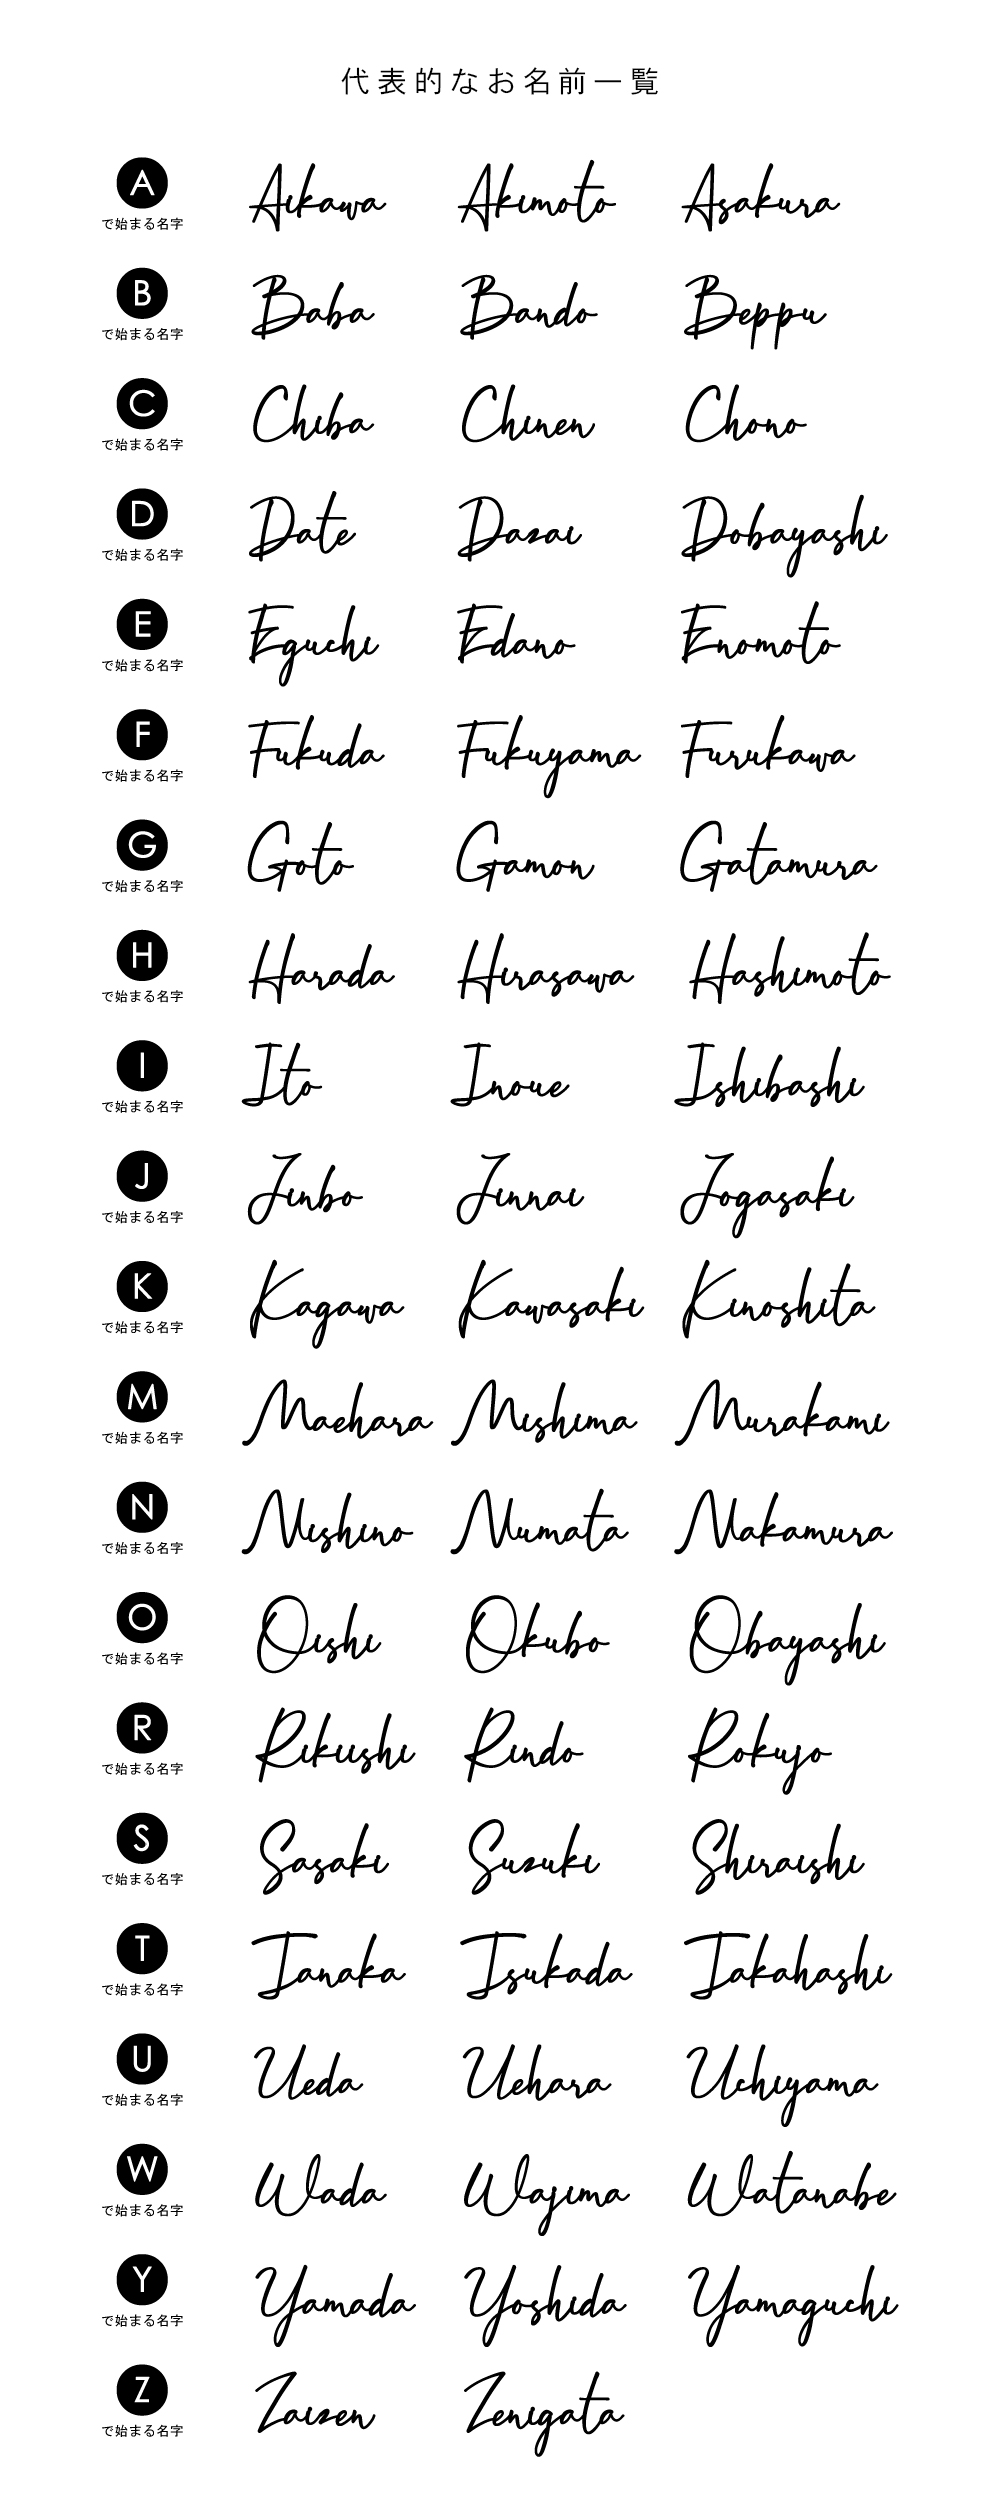 代表的なお名前一覧
A Aikawa Akimoto Asakura
で始まる名字
B Baba Bando Beppu
で始まる名字
C Chiba Chinen Chono
で始まる名字
D Date Dazai Dobayashi
で始まる名字
E Eguchi Edano Enomoto
で始まる名字
F Fukuda Fukuyama Furukawa
で始まる名字
G Goto Gamon Gatamura
で始まる名字
H Harada Hirasawa Hashimoto
で始まる名字
I Ito Inoue Ishibashi
で始まる名字
J Jinbo Jinnai Jogasaki
で始まる名字
K Kagawa Kawasaki Kinoshita
で始まる名字
M Maehara Mishima Murakami
で始まる名字
N Nishino Numata Nakamura
で始まる名字
O Oishi Okubo Obayashi
で始まる名字
R Rikiishi Rindo Rokujo
で始まる名字
S Sasaki Suzuki Shiraishi
で始まる名字
T Tanaka Tsukada Takahashi
で始まる名字
U Ueda Uehara Uchiyama
で始まる名字
W Wada Wajima Watanabe
で始まる名字
Y Yamada Yoshida Yamaguchi
で始まる名字
Z Zaizen Zenigata
で始まる名字